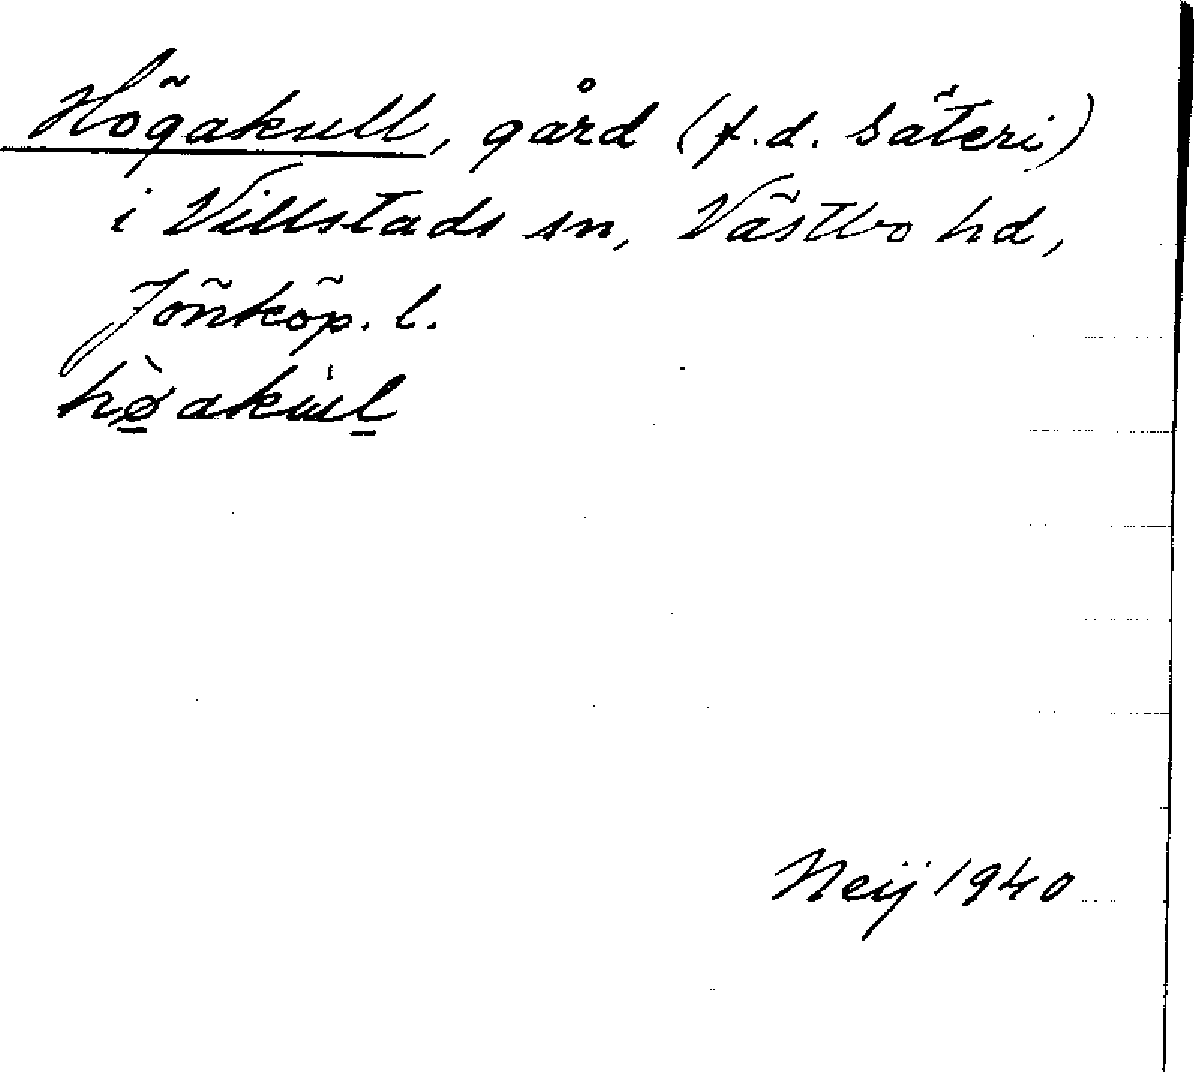 Högakull, gård (f.d. säteri)
i Villstads sn, Västbo hd,
Jönköp. l.
Neij 1940